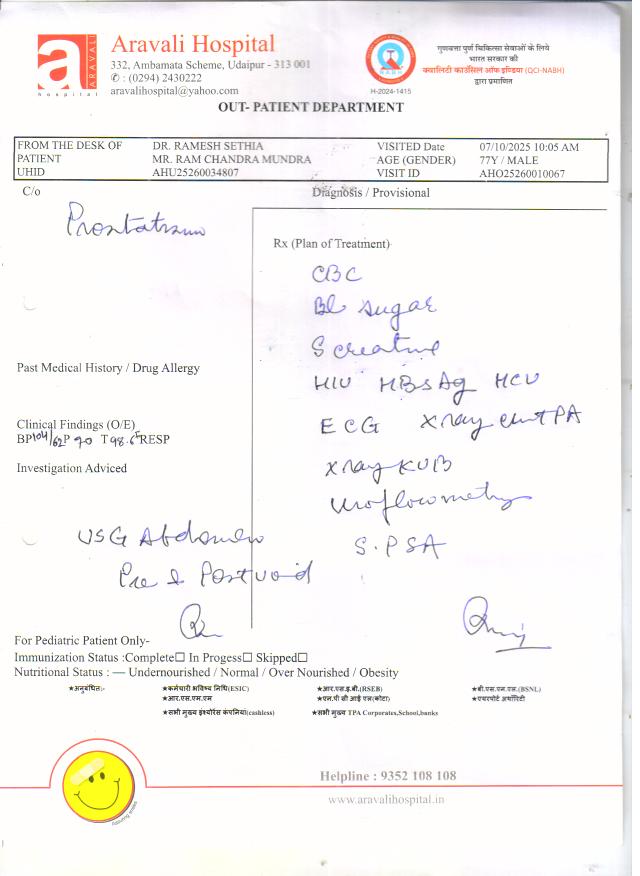 ARAVALI
a
hospital
Aravali Hospital
332, Ambamata Scheme, Udaipur - 313 001
✆ : (0294) 2430222
aravalihospital@yahoo.com
NABH
H-2024-1415
गुणवत्ता पूर्ण चिकित्सा सेवाओं के लिये
भारत सरकार की
क्वालिटी काउंसिल ऑफ इण्डिया (QCI-NABH)
द्वारा प्रमाणित
OUT- PATIENT DEPARTMENT
FROM THE DESK OF DR. RAMESH SETHIA VISITED Date 07/10/2025 10:05 AM
PATIENT MR. RAM CHANDRA MUNDRA AGE (GENDER) 77Y / MALE
UHID AHU25260034807 VISIT ID AHO25260010067
C/o Diagnosis / Provisional
Prostatism
Rx (Plan of Treatment)
CBC
Bl sugar
S creatine
Past Medical History / Drug Allergy
HIV HBsAg HCV
Clinical Findings (O/E)
ECG Xray chest PA
BP 104/62 P 90 T 98.6F RESP
Investigation Adviced
Xray KUB
Uroflowmetry
USG Abdomen
S.PSA
Pre & Postvoid
For Pediatric Patient Only-
Immunization Status :Complete☐ In Progess☐ Skipped☐
Nutritional Status : — Undernourished / Normal / Over Nourished / Obesity
★अनुबंधित:- ★कर्मचारी भविष्य निधि(ESIC) ★आर.एस.इ.बी.(RSEB) ★बी.एस.एन.एल.(BSNL)
★आर.एस.एम.एम ★एन.पी.सी आई एल(कोटा) ★एयरपोर्ट अथॉरिटी
★सभी मुख्य इंश्योरेंस कंपनियां(cashless) ★सभी मुख्य TPA Corporates,School,banks
Helpline : 9352 108 108
www.aravalihospital.in